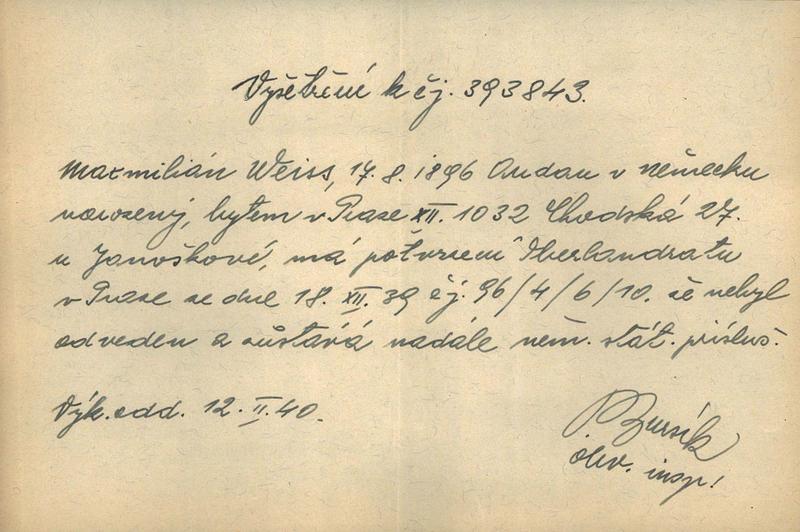 Vyšetření k čj. 393843.
Maxmilián Weiss, 17. 8. 1896 Andau v německu
narozený, bytem v Praze XII. 1032 Chodská 27.
u Janoškové, má potvrzení Oberlandratu
v Praze ze dne 18. XII. 39 čj. 96/4/6/10. že nebyl
odveden a zůstává nadále něm. stát. přísluš.
Výk. odd. 12. II. 40.
Bursík
obv. insp.